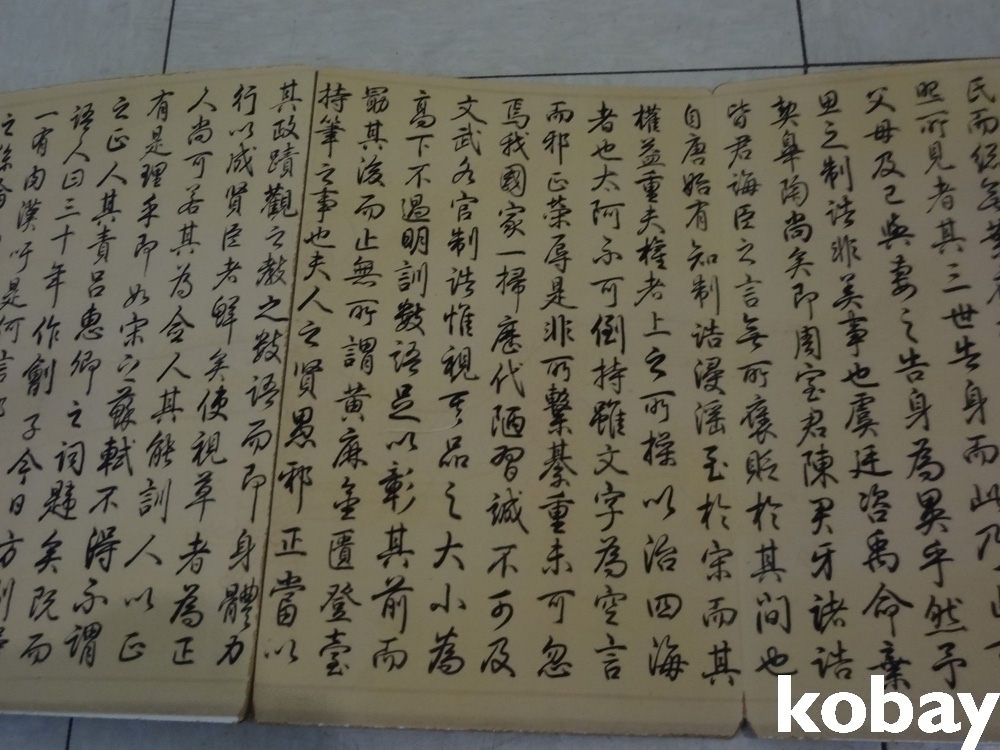 民而
照所見者其三世告身而此乃
父母及己與妻之告身為異乎然予
思之制誥非美事也虞廷咨禹命棄
契皋陶尚矣即周室君陳君牙諸誥
皆君誨臣之言無所褒貶於其間也
自唐始有知制誥浸滛至於宋而其
權益重夫權者上之所操以治四海
者也太阿不可倒持雖文字為空言
而邪正榮辱是非所繫綦重未可忽
焉我國家一掃歷代陋習誠不可及
文武各官制誥惟視其品之大小為
高下不過明訓數語足以彰其前而
勗其後而止無所謂黃麻金匱登臺
持筆之事也夫人之賢愚邪正當以
其政蹟觀之教之數語而即身體力
行以成賢臣者鮮矣使視草者為正
人尚可若其為僉人其能訓人以正
有是理乎即如宋之蘇軾不得不謂
之正人其責呂惠卿之詞韙矣既而
語人曰三十年作劊子今日方剮
一有肉漢吁是何言
之係
kobay